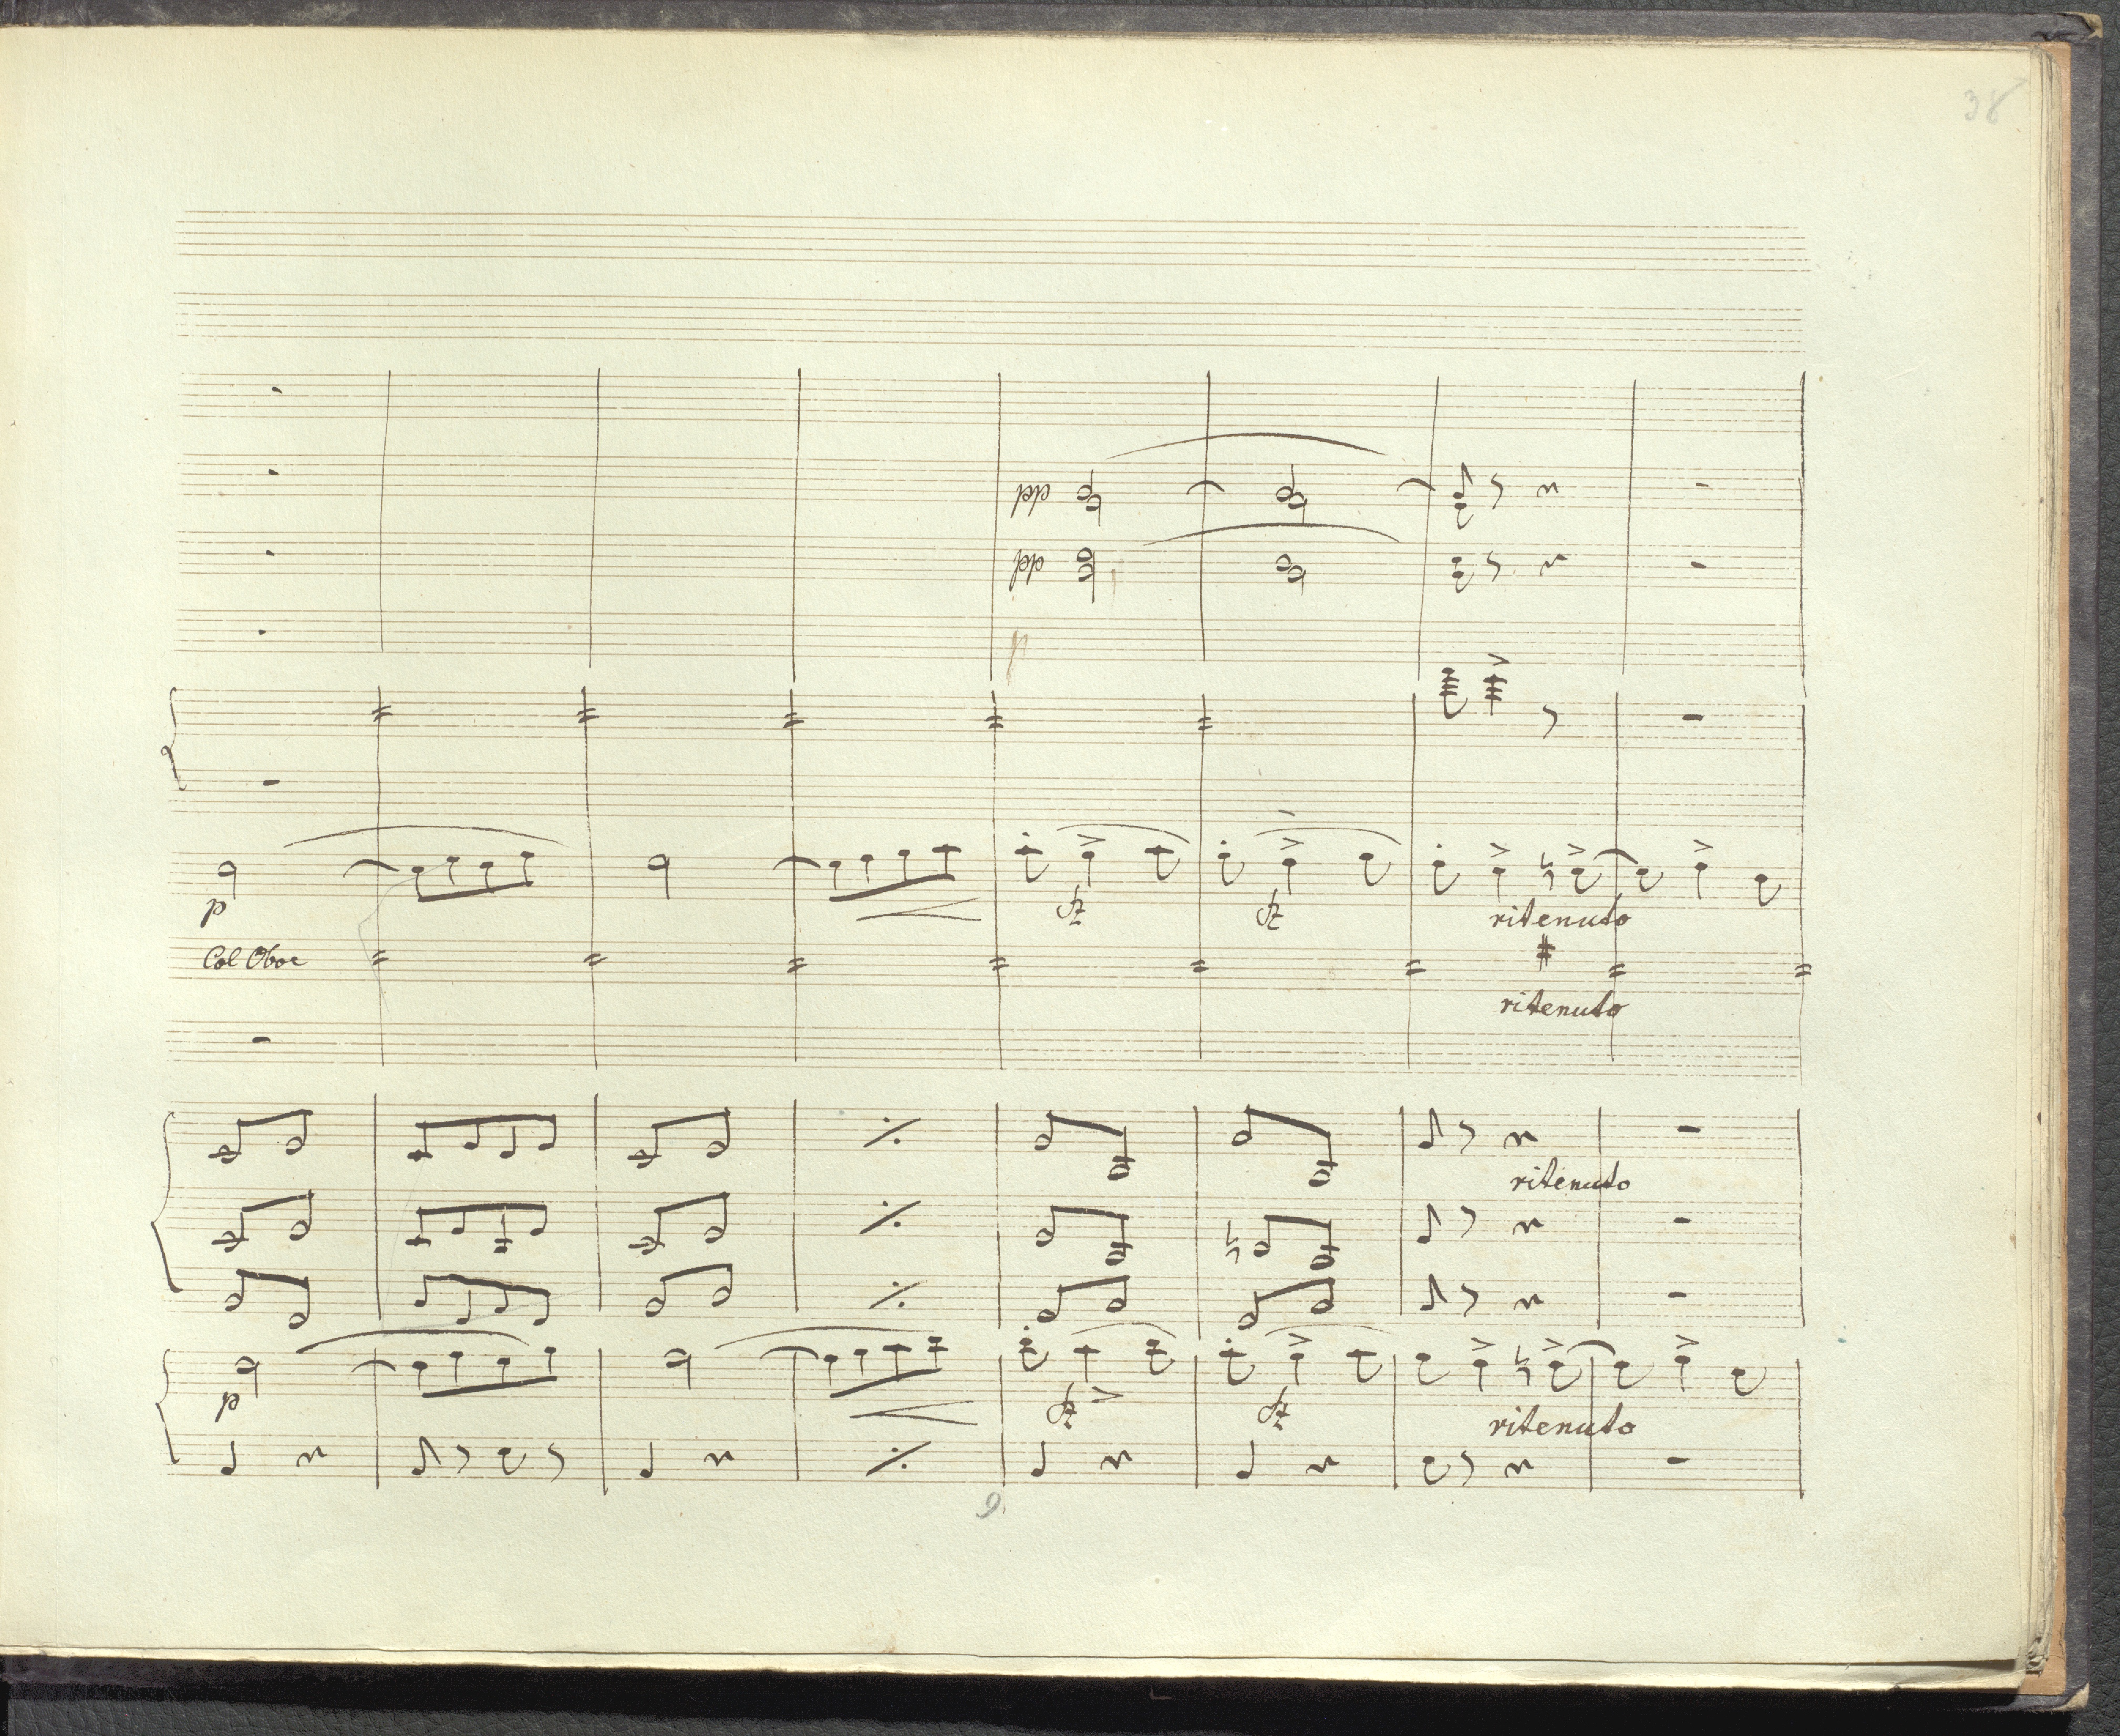 38
pp
pp
p
p
sfz sfz
ritenuto
Col Oboe
ritenuto
ritenuto
p
sfz sfz
ritenuto
9.